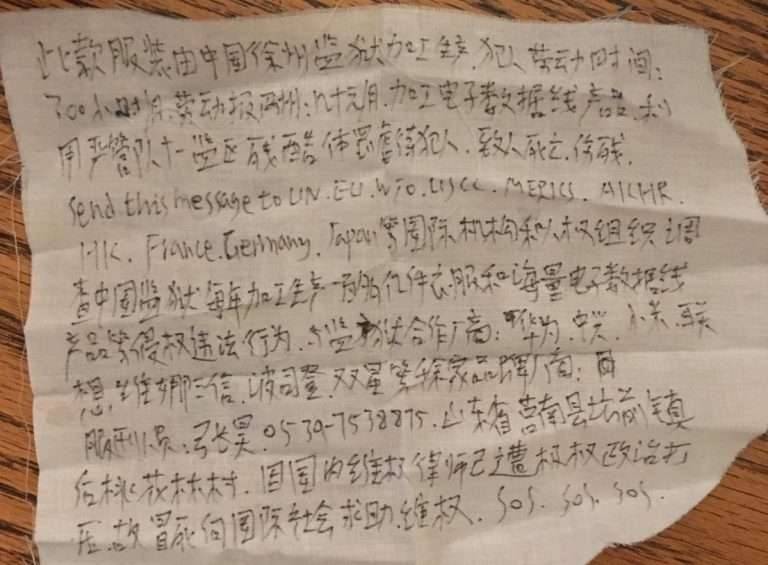 此款服装由中国徐州监狱加工生产.犯人劳动时间:
300小时/月.劳动报酬:几十元/月.加工电子数据线产品.利
用严管队十一监区残酷体罚虐待犯人.致人死亡.伤残.
Send this message to UN.EU.WTO.USCC.MERICS.AICHR.
HK.France.Germany.Japan等国际机构和人权组织调
查中国监狱每年加工生产亿件衣服和海量电子数据线
产品等侵权违法行为.与监狱合作厂商:华为.中兴.小米.联
想.维娜三信.波司登.双星等多家品牌厂商:
服刑人员:弓长昊.0539-7538875.山东省莒南县坊前镇
后桃花林村.因国内维权律师已遭极权政治打
压.故冒死向国际社会求助.维权.SOS.SOS.SOS.